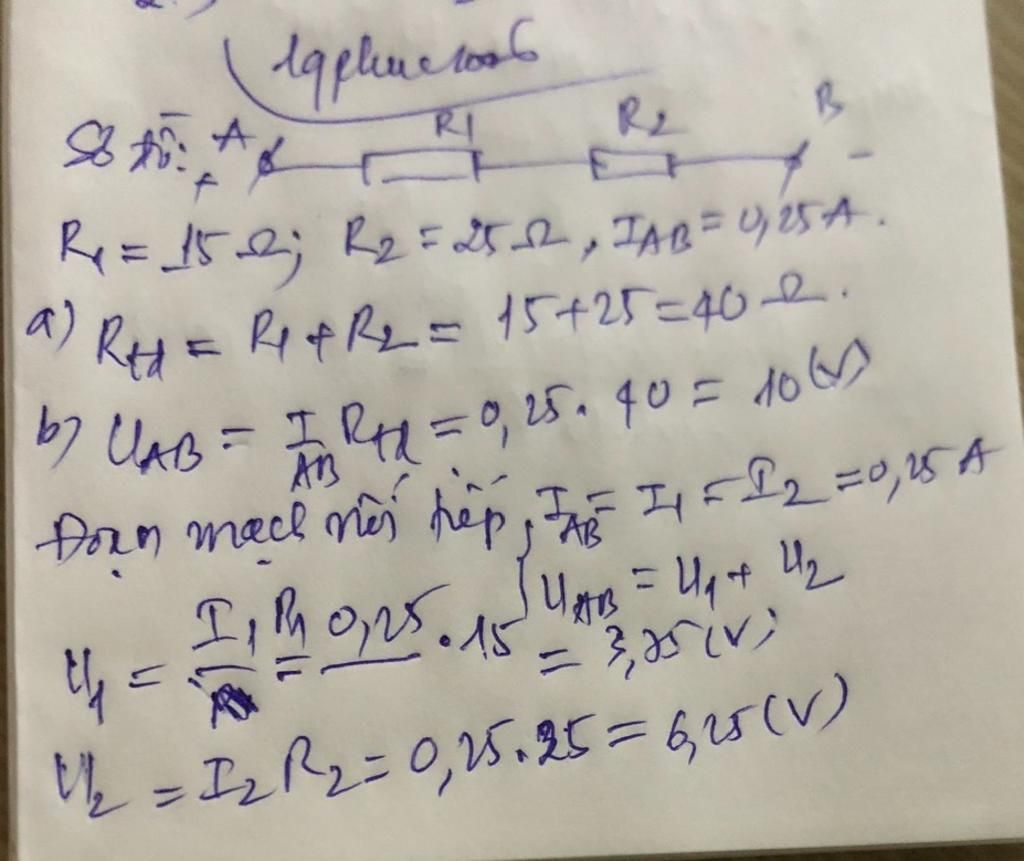 lqphuc1006
Sơ đồ: + A R1 R2 B -
R1 = 15 Ω; R2 = 25 Ω, IAB = 0,25 A.
a) Rtđ = R1 + R2 = 15 + 25 = 40 Ω.
b) UAB = IAB Rtđ = 0,25. 40 = 10 (V)
Đoạn mạch nối tiếp, IAB = I1 = I2 = 0,25 A
UAB = U1 + U2
U1 = I1 R1 = 0,25 . 15 = 3,75 (V);
U2 = I2 R2 = 0,25.25 = 6,25 (V)